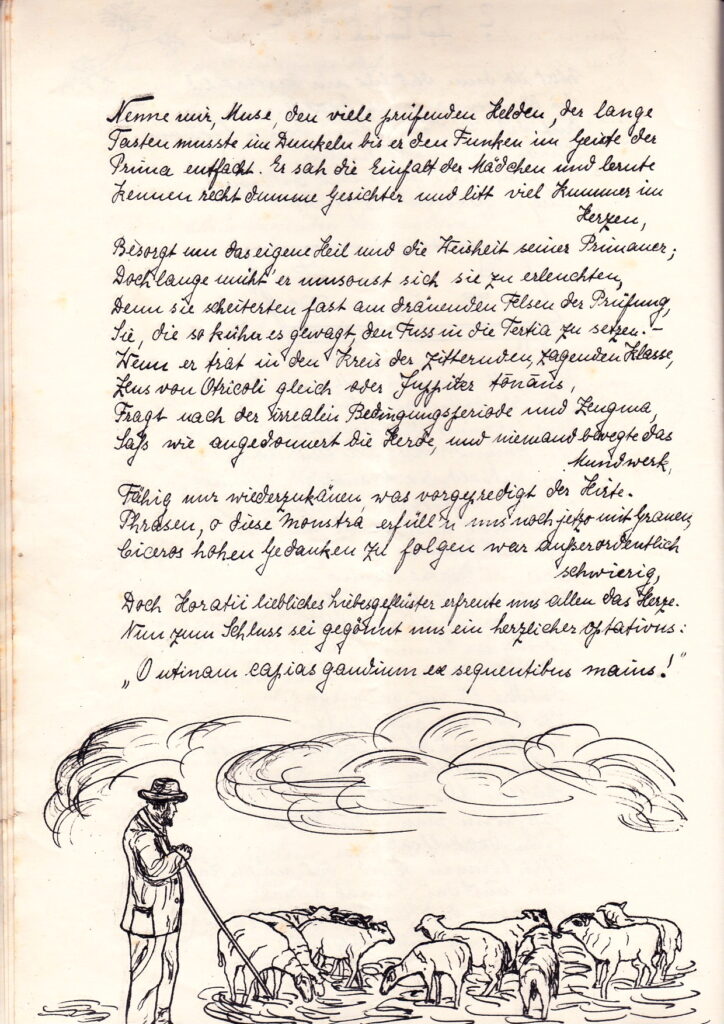 Nenne mir, Muse, den viele prüfenden Helden, der lange
Tasten musste im Dunkeln bis er den Funken im Geiste der
Prima entfacht. Er sah die Einfalt der Mädchen und lernte
kennen recht dumme Gesichter und litt viel Kummer im
Herzen,
Besorgt um das eigene Heil und die Weisheit seiner Primaner;
Doch lange müht' er umsonst sich sie zu erleuchten,
Denn sie scheiterten fast am dräuenden Felsen der Prüfung,
Sie, die so kühn es gewagt, den Fuss in die Tertia zu setzen. –
Wenn er trat in den Kreis der zitternden, zagenden Klasse,
Zeus von Otricoli gleich oder Juppiter tōnāns,
Fragt nach der irrealen Bedingungsperiode und Zeugma,
Saß wie angedonnert die Herde, und niemand bewegte das
Mundwerk,
Fähig nur wiederzukäuen was vorgepredigt der Hirte.
Phrasen, o diese monstra erfüll'n uns noch jetzo mit Grauen,
Ciceros hohen Gedanken zu folgen war außerordentlich
schwierig,
Doch Horatii liebliches Liebesgeflüster erfreute uns allen das Herze.
Nun zum Schluss sei gegönnt uns ein herzlicher optativus:
„O utinam capias gaudium ex sequentibus maius!"